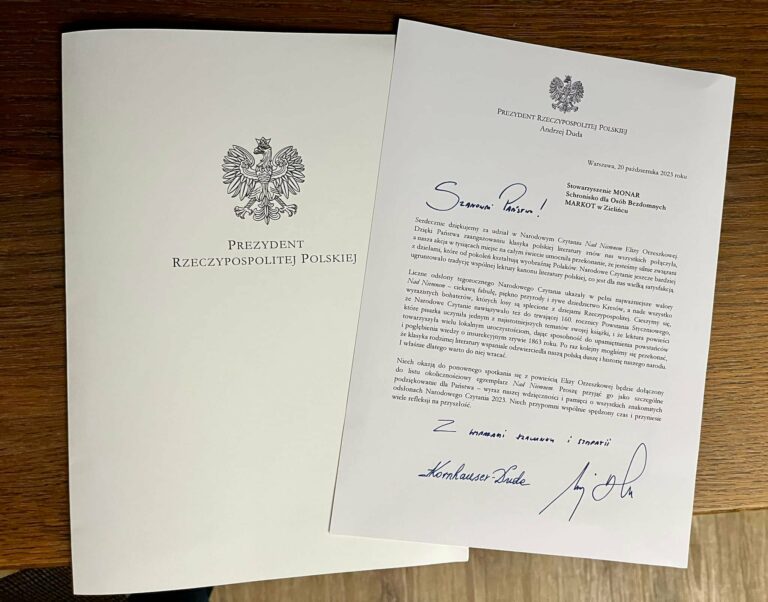 PREZYDENT
RZECZYPOSPOLITEJ POLSKIEJ
PREZYDENT RZECZYPOSPOLITEJ POLSKIEJ
Andrzej Duda
Warszawa, 20 października 2023 roku
Stowarzyszenie MONAR
Schronisko dla Osób Bezdomnych
MARKOT w Zielińcu
Szanowni Państwo!
Serdecznie dziękujemy za udział w Narodowym Czytaniu Nad Niemnem Elizy Orzeszkowej.
Dzięki Państwa zaangażowaniu klasyka polskiej literatury znów nas wszystkich połączyła,
a nasza akcja w tysiącach miejsc na całym świecie umocniła przekonanie, że jesteśmy silnie związani
z dziełami, które od pokoleń kształtują wyobraźnię Polaków. Narodowe Czytanie jeszcze bardziej
ugruntowało tradycję wspólnej lektury kanonu literatury polskiej, co jest dla nas wielką satysfakcją.
Liczne odsłony tegorocznego Narodowego Czytania ukazały w pełni najważniejsze walory
Nad Niemnem – ciekawą fabułę, piękno przyrody i żywe dziedzictwo Kresów, a nade wszystko
wyrazistych bohaterów, których losy są splecione z dziejami Rzeczypospolitej. Cieszymy się,
że Narodowe Czytanie nawiązywało też do trwającej 160. rocznicy Powstania Styczniowego,
które pisarka uczyniła jednym z najistotniejszych tematów swojej książki, i że lektura powieści
towarzyszyła wielu lokalnym uroczystościom, dając sposobność do upamiętnienia powstańców
i pogłębienia wiedzy o insurekcyjnym zrywie 1863 roku. Po raz kolejny mogliśmy się przekonać,
że klasyka rodzimej literatury wspaniale odzwierciedla naszą polską duszę i historię naszego narodu.
I właśnie dlatego warto do niej wracać.
Niech okazją do ponownego spotkania się z powieścią Elizy Orzeszkowej będzie dołączony
do listu okolicznościowy egzemplarz Nad Niemnem. Proszę przyjąć go jako szczególne
podziękowanie dla Państwa – wyraz naszej wdzięczności i pamięci o wszystkich znakomitych
odsłonach Narodowego Czytania 2023. Niech przypomni wspólnie spędzony czas i przyniesie
wiele refleksji na przyszłość.
Z wyrazami szacunku i sympatii
Kornhauser-Duda